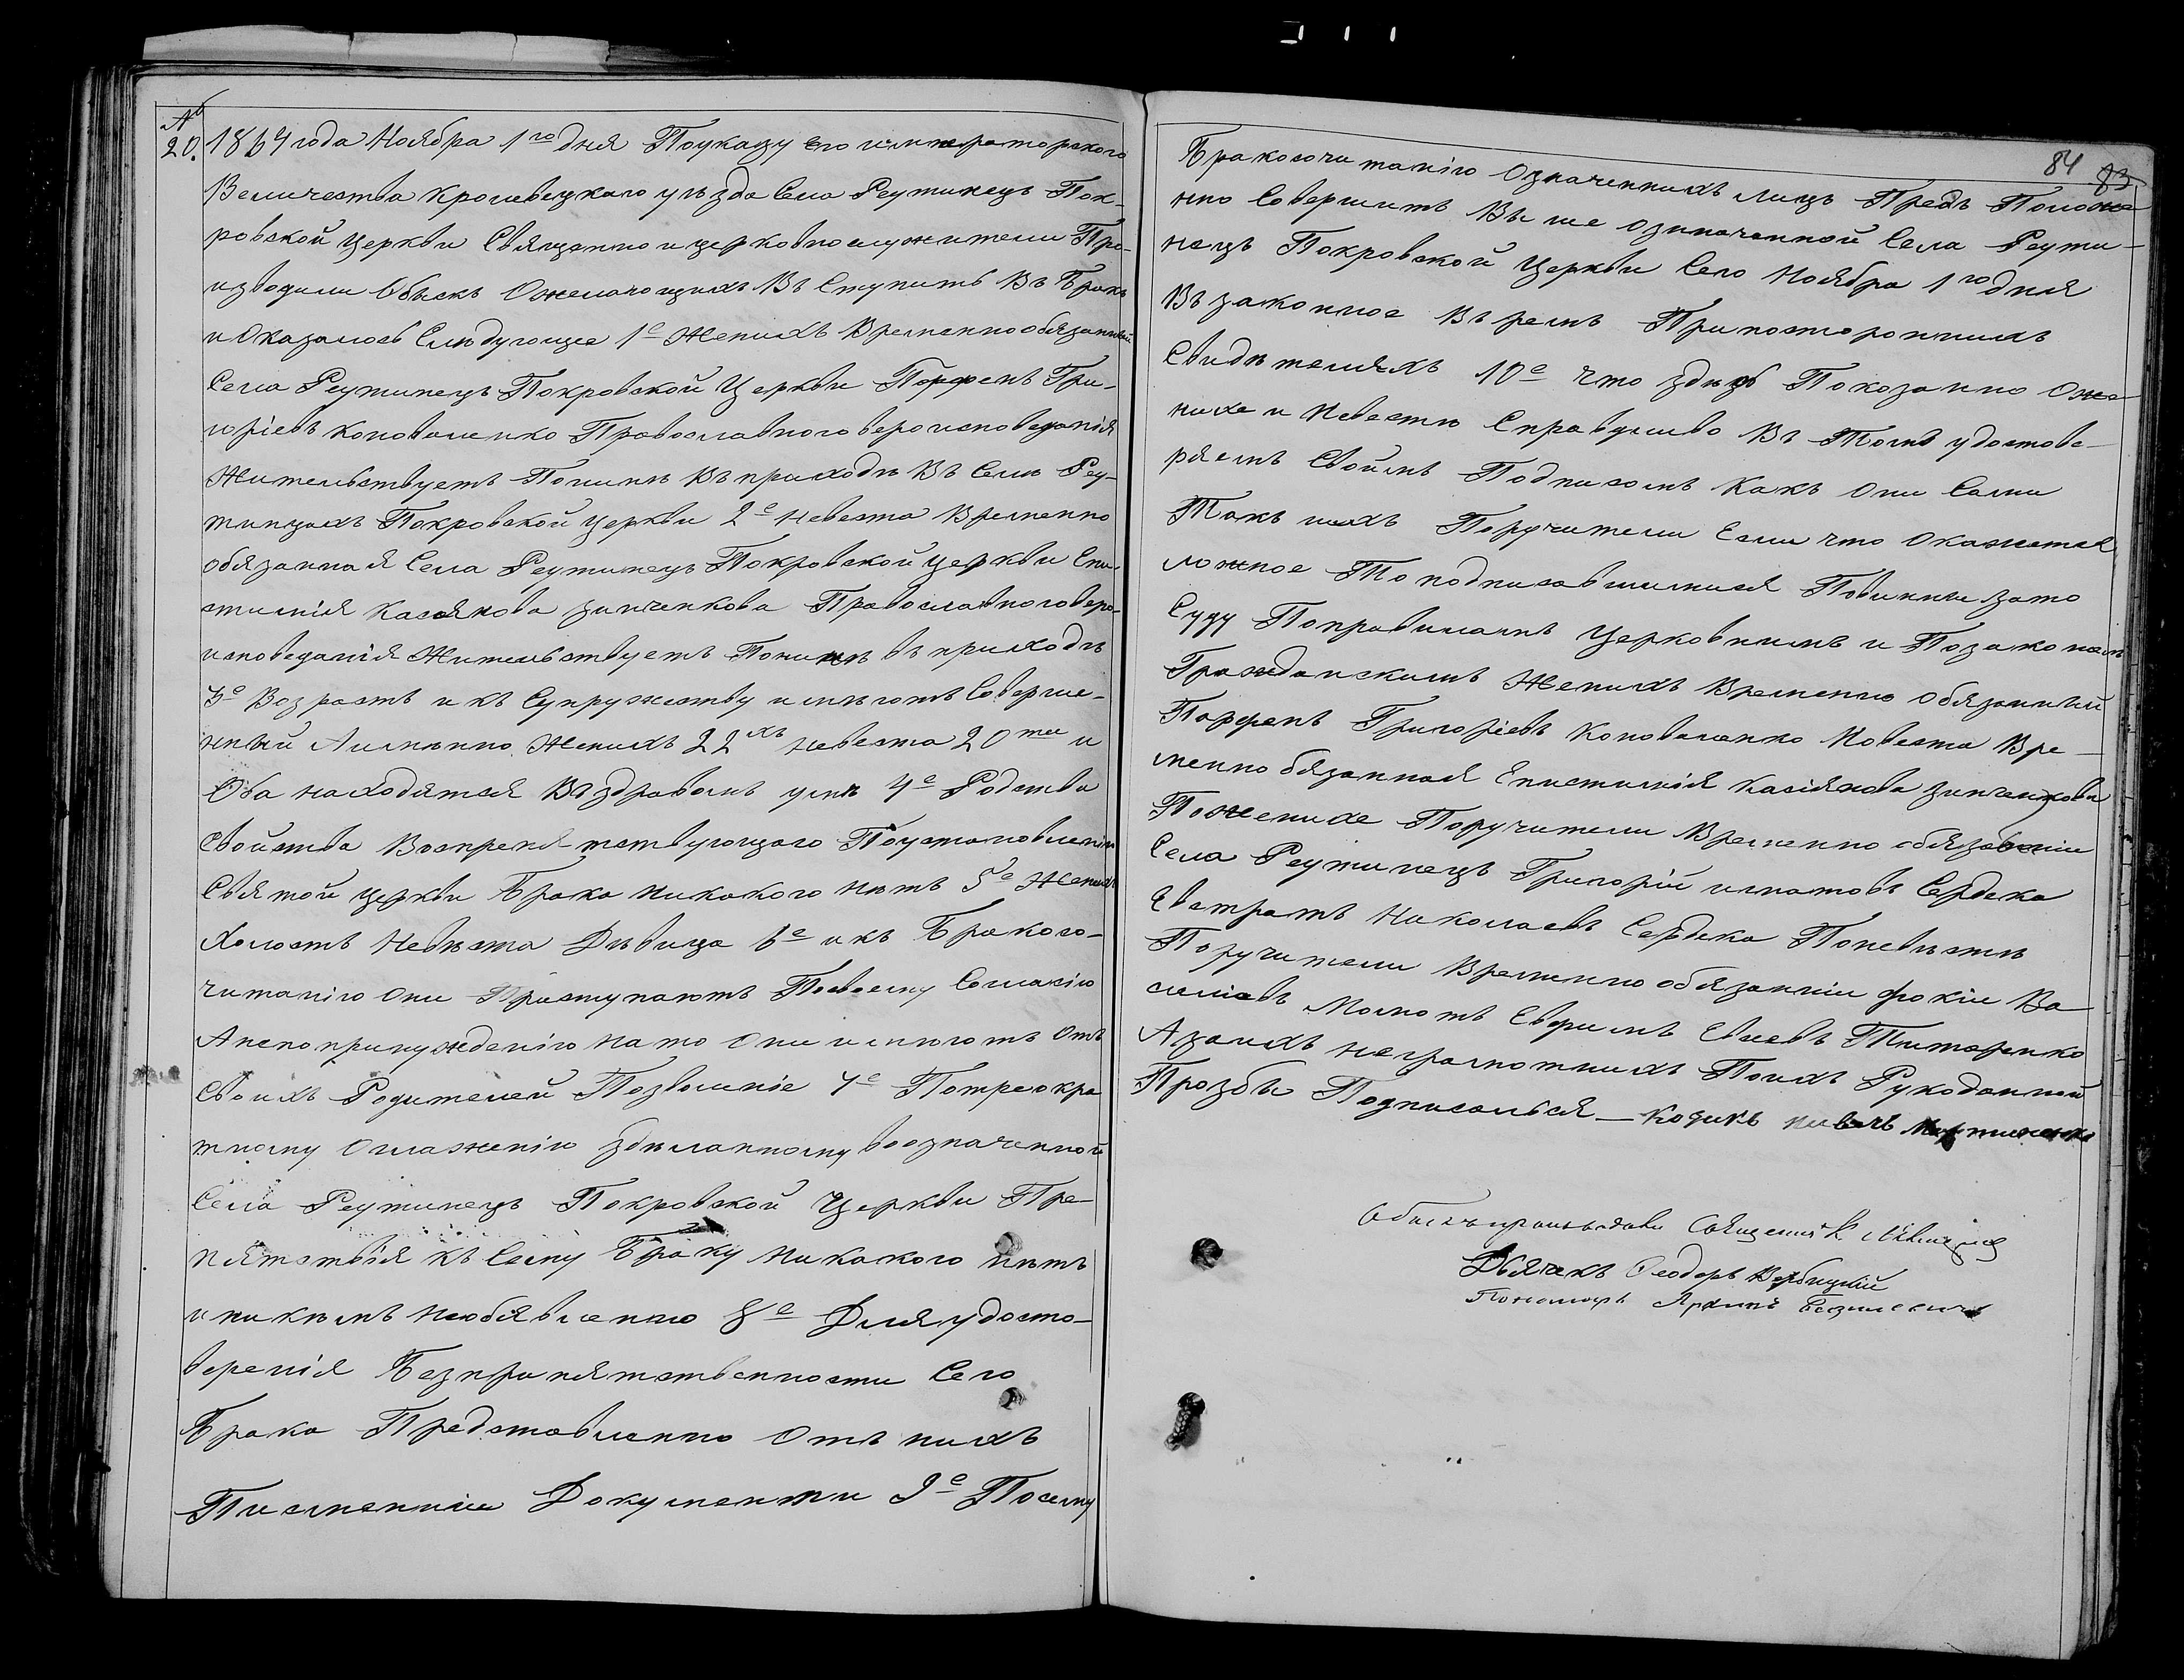 №
20.
1864 года Ноября 1го дня Поуказу Его императорского
Величества Кролевецкаго уезда Села Реутинецъ Пок-
ровской Церкви Священно и церковнослужители Про-
изводили Обыскъ Ожелающихъ Въ Ступить Въ Бракъ
и Оказалось Слѣдующее 1е Женихъ Временнообязанный
Села Реутинецъ Покровской Церкви Порфенъ Гри-
горіевъ Коноваленко Православного вероисповеданія
Жительствуетъ Понинѣ Въ приходѣ Въ Селѣ Реу-
тинцахъ Покровской церкви 2е Невеста Временно
обязанная Села Реутинецъ Покровской церкви Епи-
стимія Касіянова Зинченкова Православного веро-
исповеданія Жительствуетъ Понинѣ въ приходѣ
3е Возрастъ и къ Супружеству имѣютъ Соверше-
нный Аименно Женихъ 22хъ Невеста 20ти и
Оба находятся Въ здравомъ умѣ 4е Родства
Свойства Воспрепятствующаго Поустановленію
Святой Церкви Брака никакого нѣтъ 5е Женихъ
Холостъ Невѣста Дѣвица 6е икъ Бракосо-
читанію Они Приступаютъ Посвоему Согласію
Анепопринужденію На то Они имѣютъ Отъ
Своихъ Родителей Позволеніе 7е Потреокра
тному Оглашенію Здѣланному воозначенной
Села Реутинецъ Покровской Церкви Пре-
пятствія къ Сему Браку никакого нѣтъ
и никѣмъ необявленно 8е Для удосто-
веренія Безприпятственности Сего
Брака Представленно Отъ нихъ
Писменніи Документи 9е Посему
84 83
Бракосочитанію Означеннихъ лицъ Предъ Положе
нно Совершить Въ ше означенной Села Реути-
нецъ Покровской Церкви Сего Ноября 1го дня
Въ законное Въ ремъ Припостороннихъ
Свидѣтеляхъ 10е Что здѣсь Показанно Оже-
нихе и Невестѣ Справдливо Въ Томъ удостове-
ряемъ Своимъ Подписомъ Какъ Они Сами
Такъ ихъ Поручители Если что Окажется
ложное То подписавшиися Повинни зато
Суду Поправиламъ Церковнимъ и Позаконамъ
Гражданскимъ Женихъ Временно Обязанный
Порфенъ Григоріевъ Коноваленко Невеста Вре-
меннобязанная Епистимія Касіянова Зинченкова
Поженихе Поручители Временно обязанніи
Села Реутинецъ Григорій игнатовъ Сердека
Евстратъ Николаевъ Сердека Поневѣстѣ
Поручители Временно обязанніи Фокіи Ва
силіевъ Момотъ Ефимъ Евсевъ Титаренко
Азаихъ неграмотнихъ Поихъ Рукоданной
Прозбѣ Подписался — Козикъ
Обыскъ производили Священикъ
Дьячекъ Феодоръ Вербицкій
Пономарь